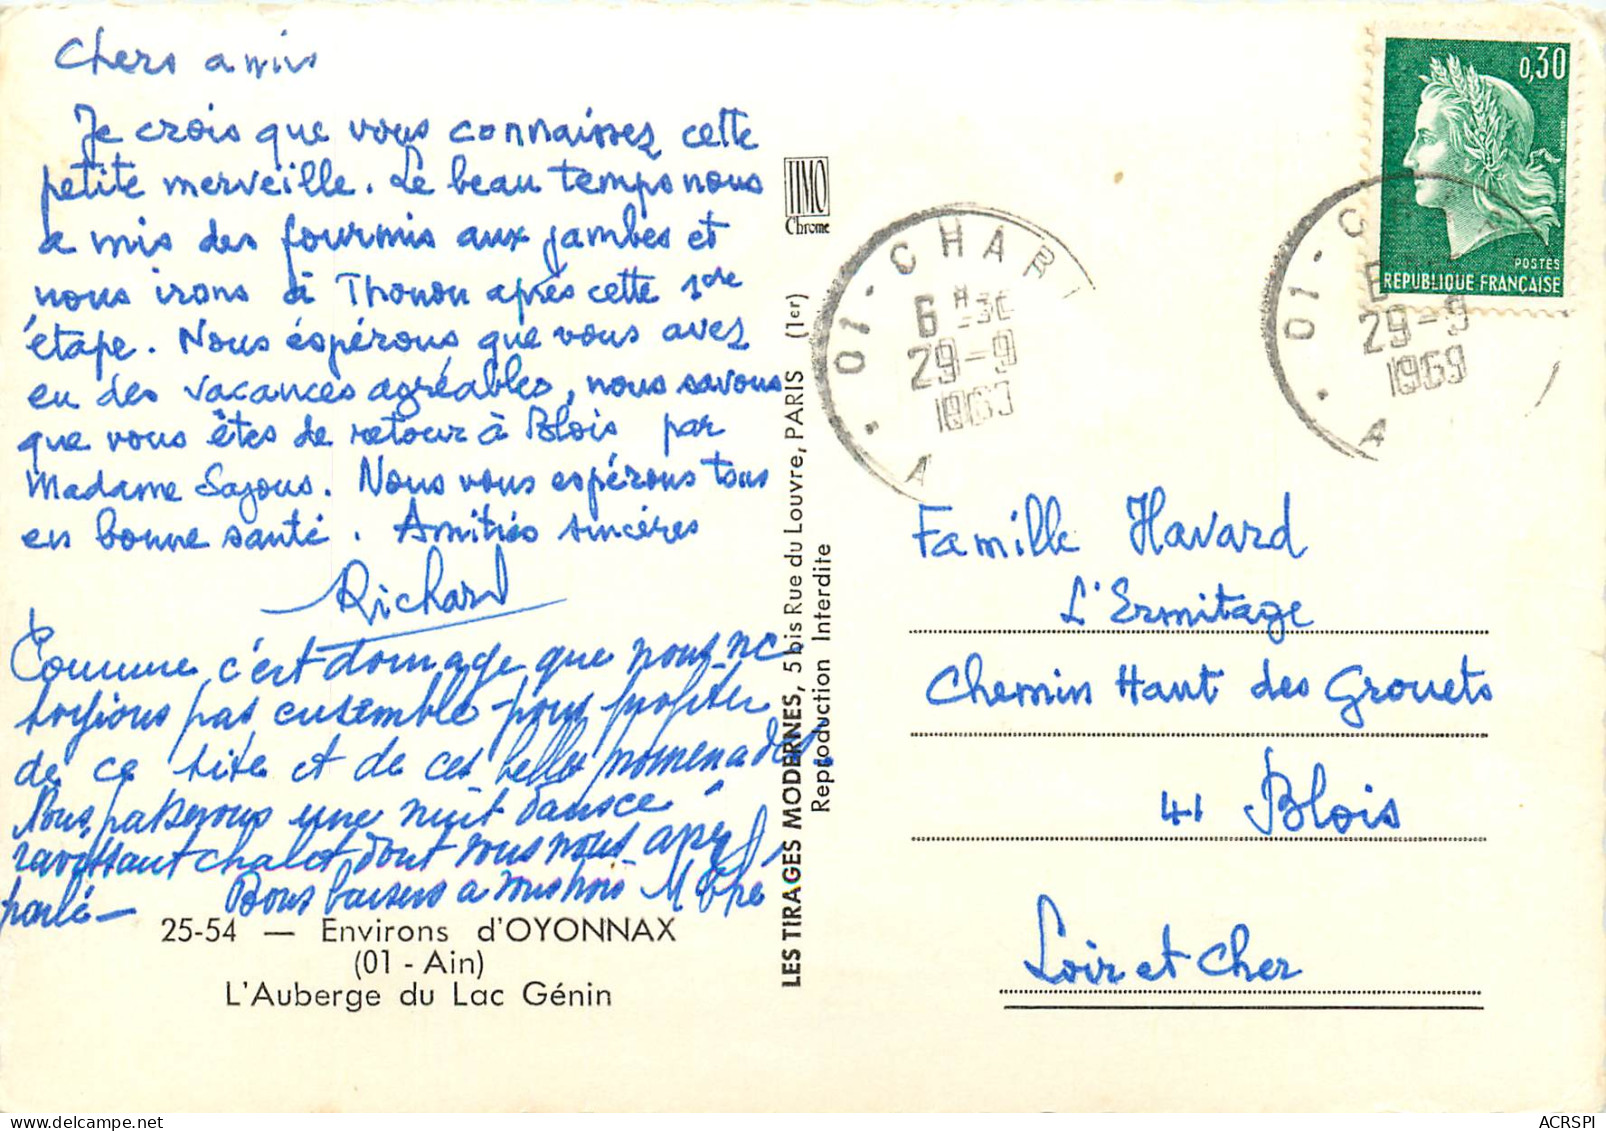 Chers amis
Je crois que vous connaissez cette
petite merveille. Le beau temps nous
a mis des fourmis aux jambes et
nous irons à Thonon après cette 1ère
étape. Nous espérons que vous avez
eu des vacances agréables, nous savons
que vous êtes de retour à Blois par
Madame Sajous. Nous vous espérons tous
en bonne santé. Amitiés sincères
Richard
Comme c'est domage que nous ne
soyions pas ensemble pour profiter
de ce site et de ces belles promenades
Nous passerons une nuit dans ce
ravissant chalet dont vous nous aviez
parlé —
Bons baisers à vous trois M
25-54 — Environs d'OYONNAX
(01 - Ain)
L'Auberge du Lac Génin
TIMO
Chrome
LES TIRAGES MODERNES, 5 bis Rue du Louvre, PARIS (1er)
Reproduction Interdite
01 - CHAR
6 H 30
29-9
1969
A
0,30
POSTES
REPUBLIQUE FRANÇAISE
01 - C
29-9
1969
A
Famille Havard
L'Ermitage
Chemin Haut des Grouets
41 Blois
Loir et Cher
ACRSPI